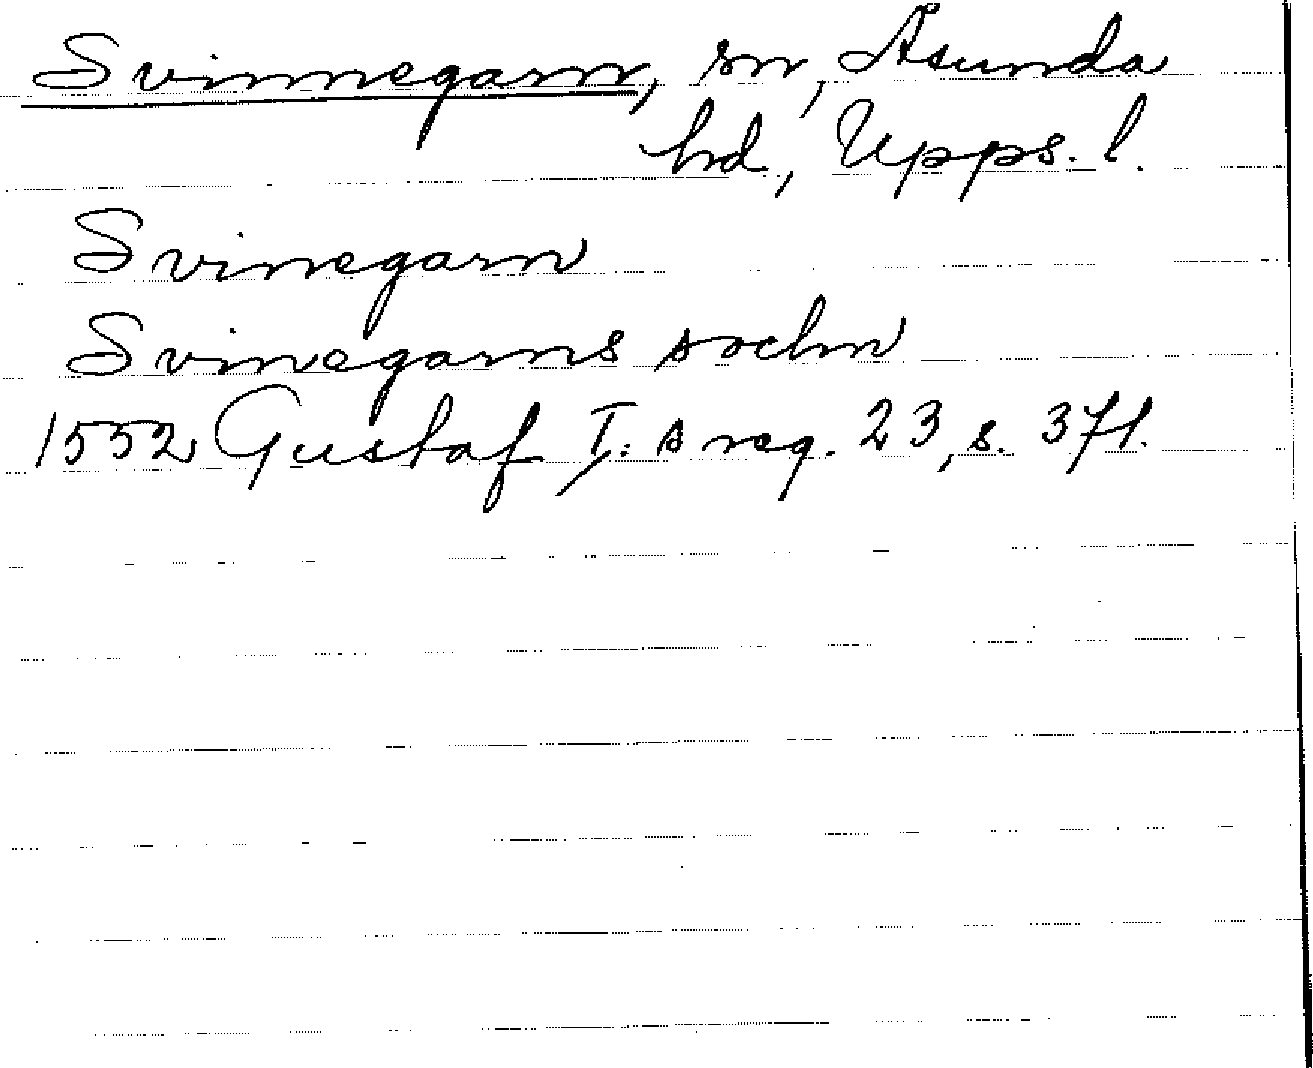 Svinnegarn, sn, Åsunda
hd, Upps. l.
Svinegarn
Svinegarns sochn
1552 Gustaf I:s reg. 23, s. 371.